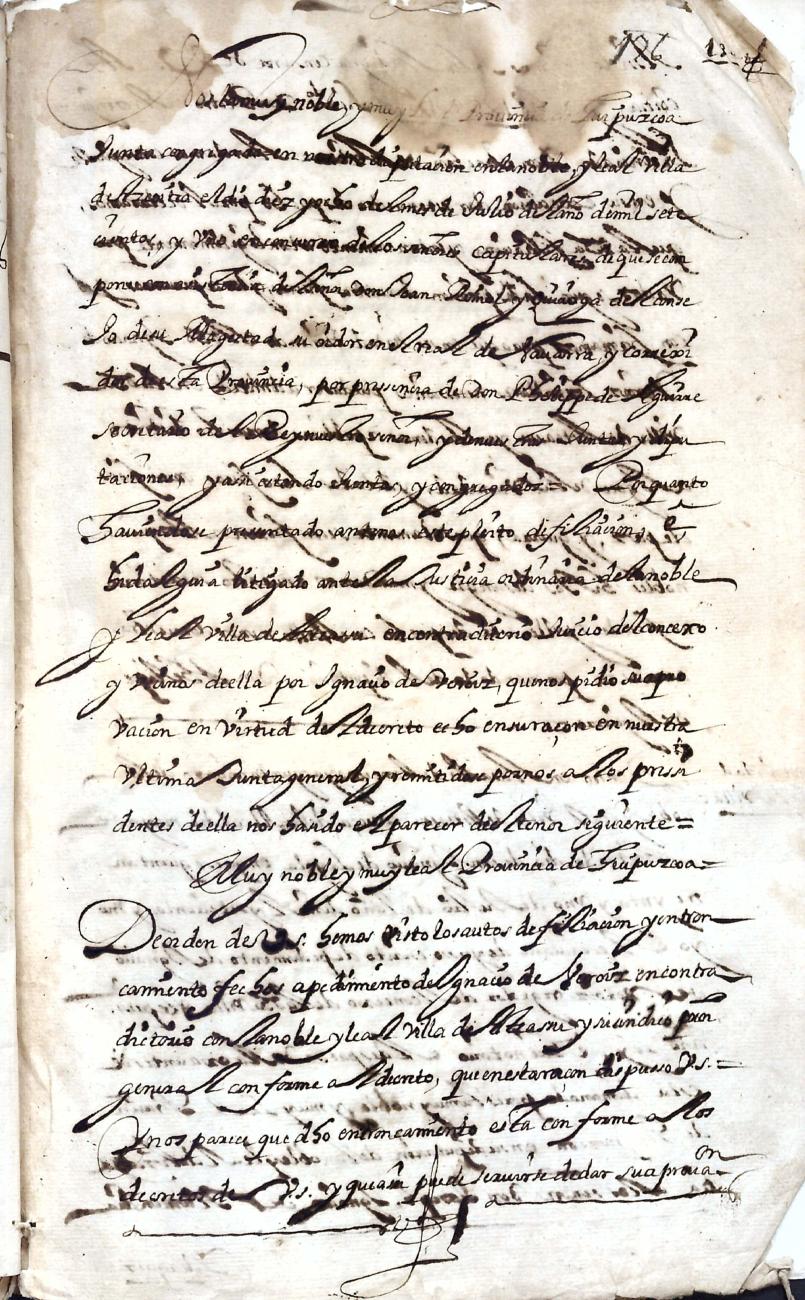 186 13
Nos la muy noble, y muy leal Provincia de Guipuzcoa
Junta congregada en nuestra diputacion en la noble, y leal villa
de Azcoitia el dia diez y ocho del mes de Julio del año de mil sete
cientos, y uno en concurso de los señores capitulares, de que se com
pone con asistencia del señor Don Joan
jo de su Magestad, su oidor en el real de Navarra, y correxi
dor de esta Provincia, por pressencia de Don Phelippe de Aguirre
secretario de el Rey nuestro señor, y de nuestras Juntas, y dipu
taciones, y assi estando Juntos, y congregados = Por quanto
haviendose presentado ante nos este pleito de filiacion, e
hidalguia litigado ante la Justicia ordinaria de la noble
y leal villa de en contraditorio Juicio del concexo
y vecinos de ella por Ignacio de , que nos pidio su apro
vacion en virtud del decreto echo en su raçon en nuestra
ultima Junta general, y remitidose por nos a los pressi
dentes de ella nos ha sido el parecer del tenor siguiente =
Muy noble y muy leal Provincia de Guipuzcoa =
De orden de V.s. hemos visto los autos de filiacion y entron
camiento fechos a pedimiento de Ignacio de en contra
dictorio con la noble y leal villa de y su sindico procor
general conforme al decreto, que en esta raçon dispusso V.s. =
Y nos parece que dho entroncamiento esta conforme a los
decretos de V.s. y que assi puede servirse de dar su aprovaon